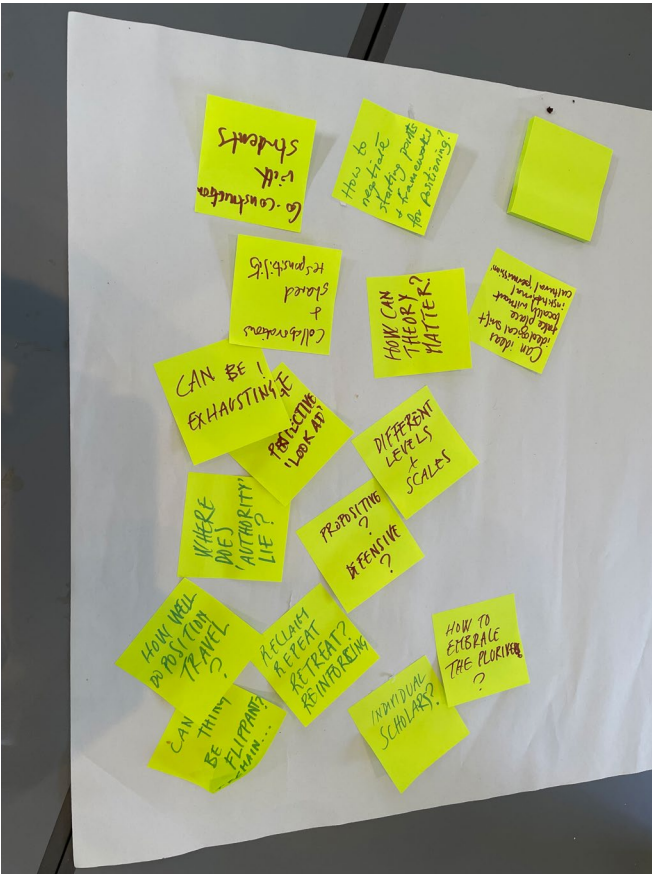 Co-construction
with
students
How to
negotiate
starting points
+ frameworks
for positioning?
Collaborations
+
shared
responsibility
HOW CAN
THEORY
MATTER?
Can ideas
ideological shift
take place
locally without
institutional
cultural permission
CAN BE
EXHAUSTING
'LOOK AD'
DIFFERENT
LEVELS
+
SCALES
WHERE
DOES
'AUTHORITY'
LIE?
PROPOSITIVE
?
DEFENSIVE
?
HOW WELL
DO POSITION
TRAVEL
?
RECLAIM
REPEAT
RETREAT?
REINFORCING
HOW TO
EMBRACE
THE
?
INDIVIDUAL
SCHOLARS?
CAN THINY
BE
FLIPPANT?